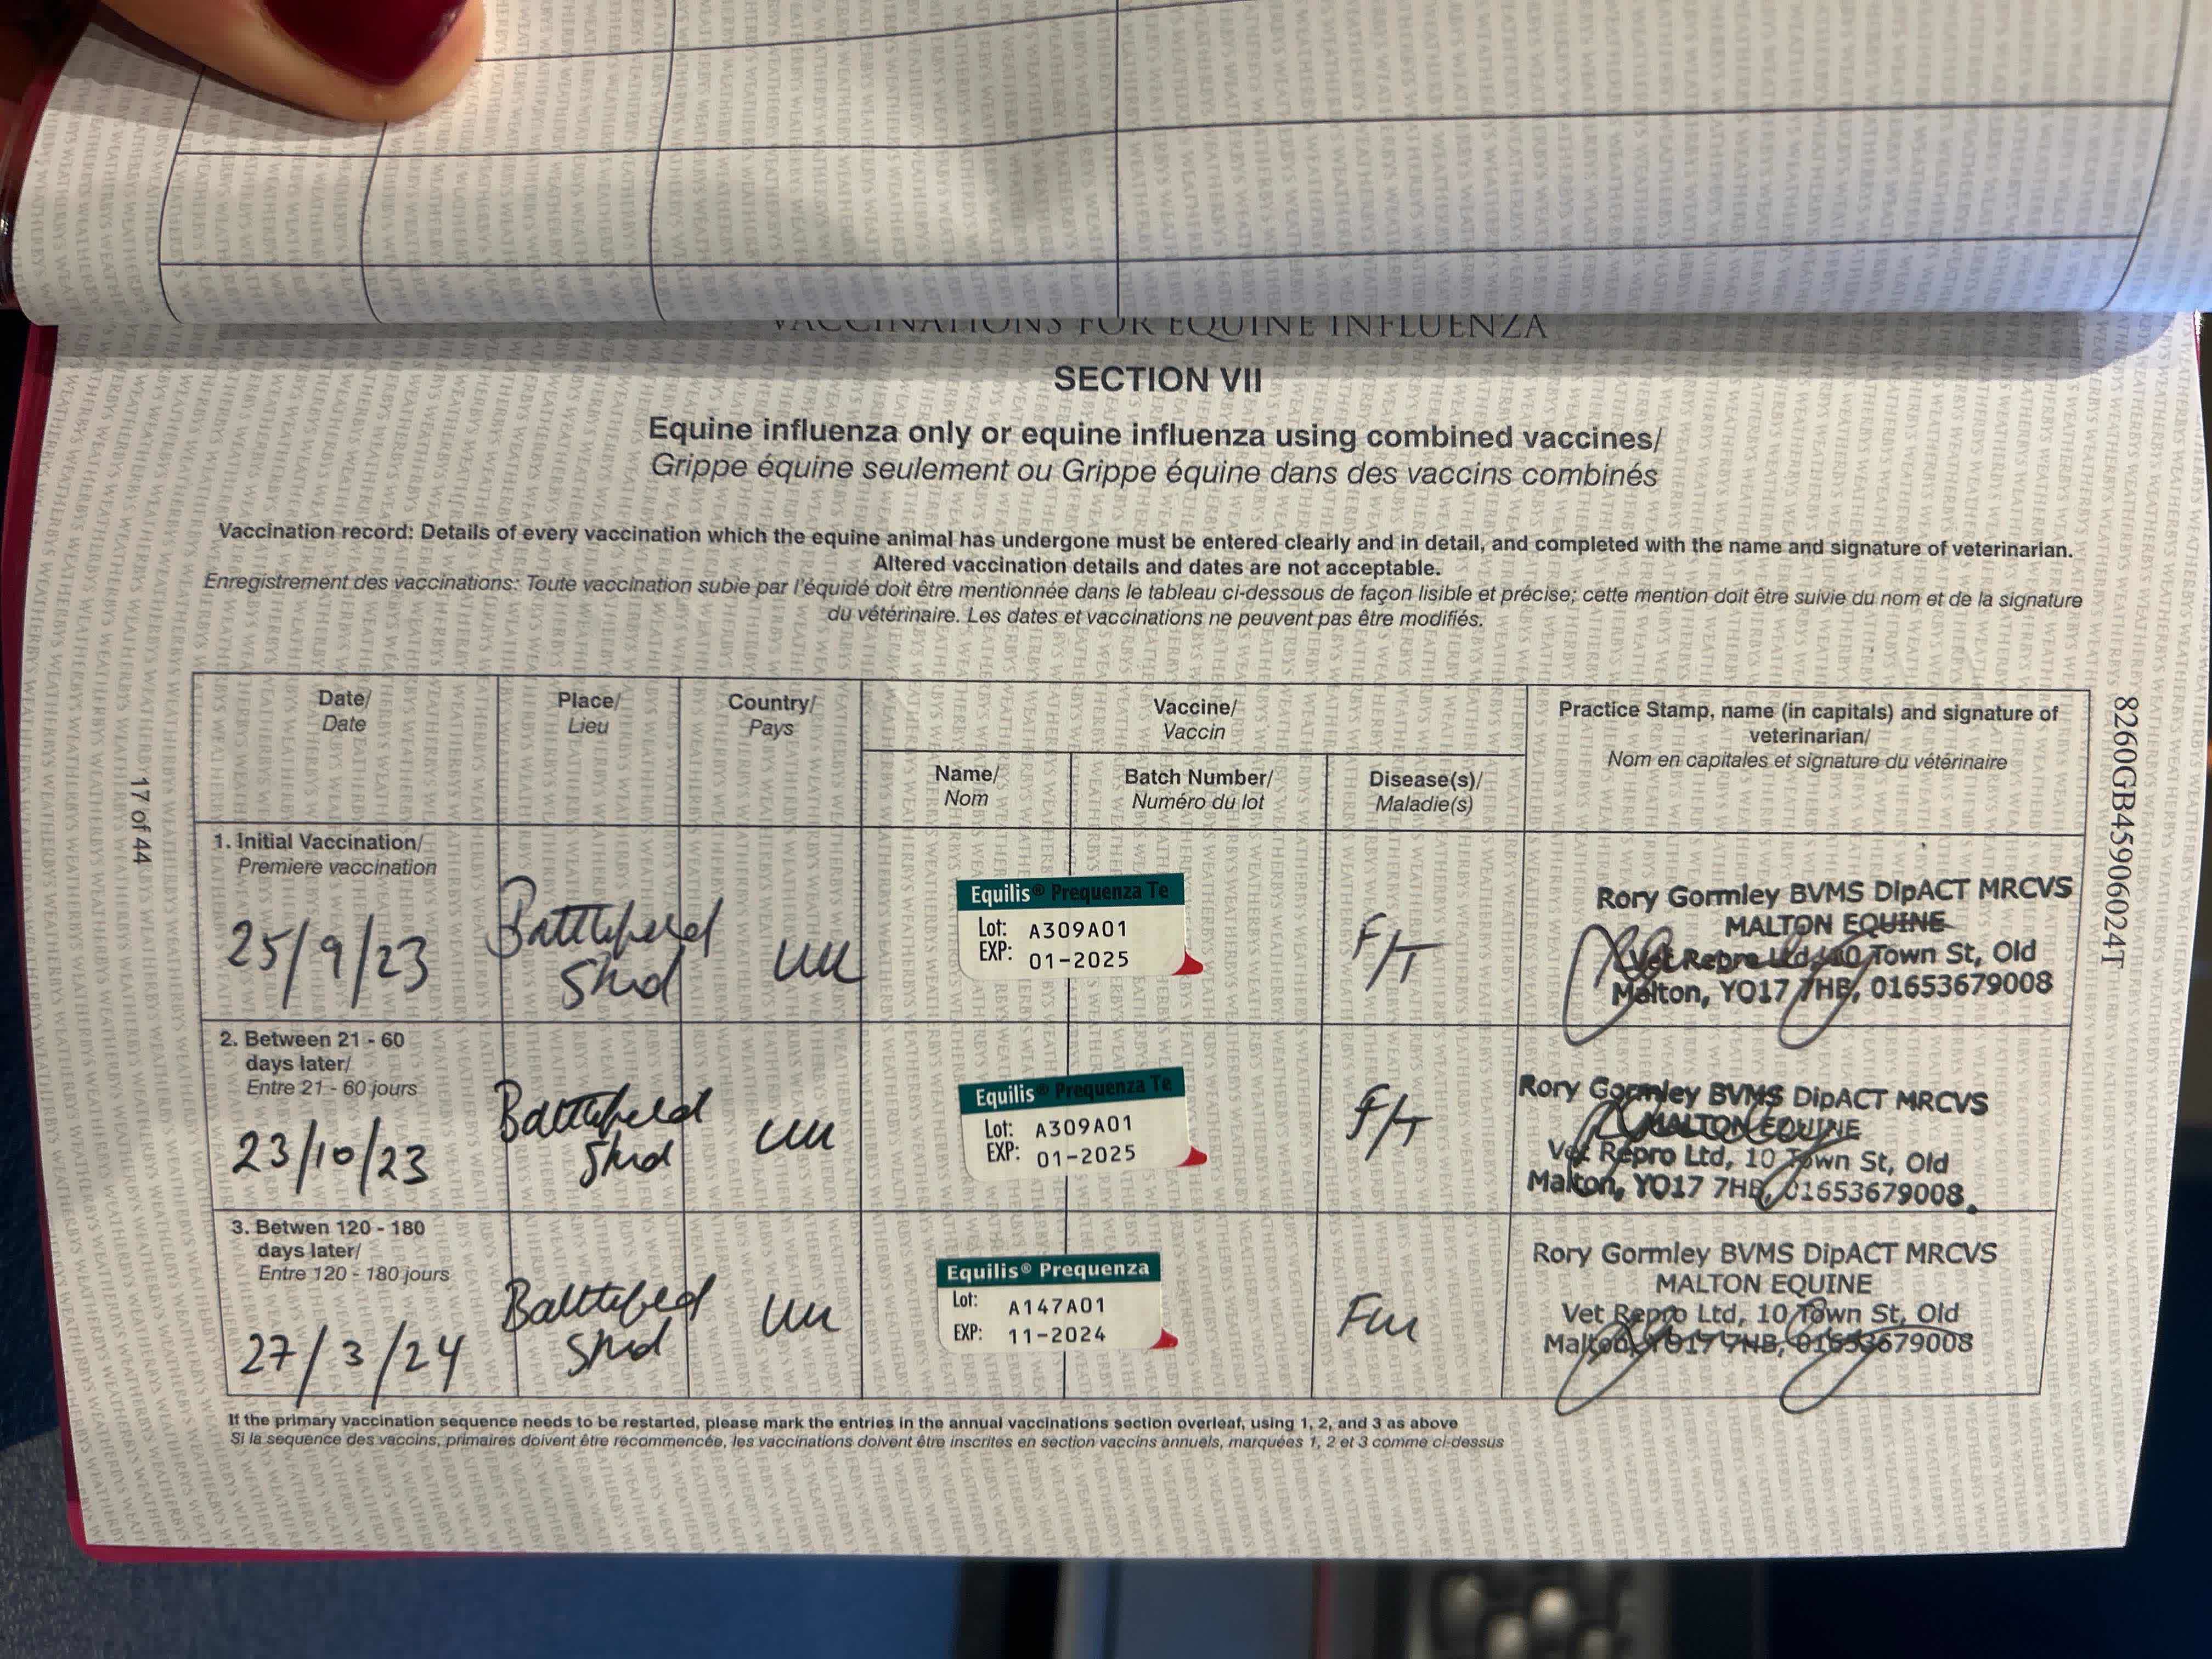 VACCINATIONS FOR EQUINE INFLUENZA
SECTION VII
Equine influenza only or equine influenza using combined vaccines/
Grippe équine seulement ou Grippe équine dans des vaccins combinés
Vaccination record: Details of every vaccination which the equine animal has undergone must be entered clearly and in detail, and completed with the name and signature of veterinarian.
Altered vaccination details and dates are not acceptable.
Enregistrement des vaccinations: Toute vaccination subie par l'équidé doit être mentionnée dans le tableau ci-dessous de façon lisible et précise; cette mention doit être suivie du nom et de la signature
du vétérinaire. Les dates et vaccinations ne peuvent pas être modifiés.
Date/
Date
Place/
Lieu
Country/
Pays
Vaccine/
Vaccin
Name/
Nom
Batch Number/
Numéro du lot
Disease(s)/
Maladie(s)
Practice Stamp, name (in capitals) and signature of
veterinarian/
Nom en capitales et signature du vétérinaire
1. Initial Vaccination/
Premiere vaccination
25/9/23
Battlefield
Stud
UK
Equilis® Prequenza Te
Lot: A309A01
EXP: 01-2025
F/T
Rory Gormley BVMS DipACT MRCVS
MALTON EQUINE
Vet Repro Ltd, 10 Town St, Old
Malton, YO17 7HB, 01653679008
2. Between 21 - 60
days later/
Entre 21 - 60 jours
23/10/23
Battlefield
Stud
UK
Equilis® Prequenza Te
Lot: A309A01
EXP: 01-2025
F/T
Rory Gormley BVMS DipACT MRCVS
MALTON EQUINE
Vet Repro Ltd, 10 Town St, Old
Malton, YO17 7HB, 01653679008
3. Betwen 120 - 180
days later/
Entre 120 - 180 jours
27/3/24
Battlefield
Stud
UK
Equilis® Prequenza
Lot: A147A01
EXP: 11-2024
Flu
Rory Gormley BVMS DipACT MRCVS
MALTON EQUINE
Vet Repro Ltd, 10 Town St, Old
Malton, YO17 7HB, 01653679008
If the primary vaccination sequence needs to be restarted, please mark the entries in the annual vaccinations section overleaf, using 1, 2, and 3 as above
Si la sequence des vaccins, primaires doivent être recommencée, les vaccinations doivent être inscrites en section vaccins annuels, marquées 1, 2 et 3 comme ci-dessus
17 of 44
8260GB45906024T
WEATHERBYS